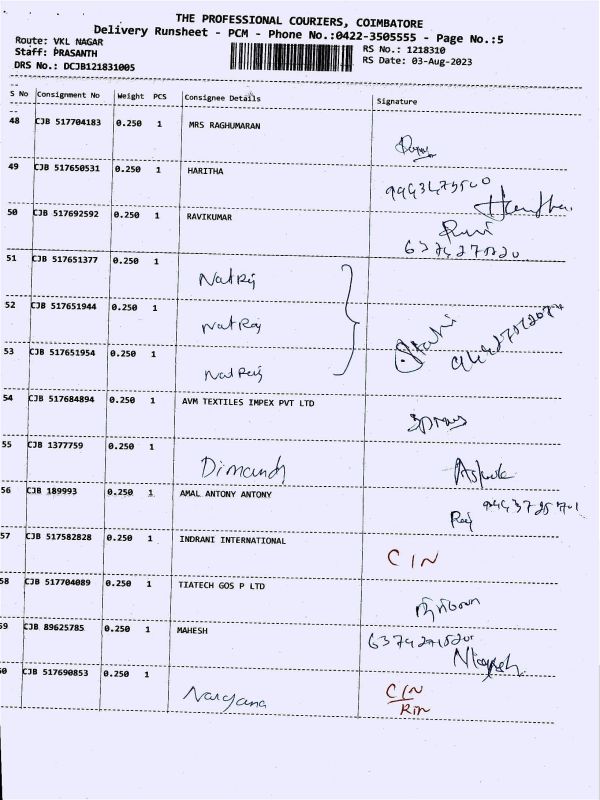 THE PROFESSIONAL COURIERS, COIMBATORE
Delivery Runsheet - PCM - Phone No.:0422-3505555 - Page No.:5
Route: VKL NAGAR
RS No.: 1218310
Staff: PRASANTH
RS Date: 03-Aug-2023
DRS No.: DCJB121831005
S No Consignment No Weight PCS Consignee Details Signature
48 CJB 517704183 0.250 1 MRS RAGHUMARAN
49 CJB 517650531 0.250 1 HARITHA
50 CJB 517692592 0.250 1 RAVIKUMAR
Ravi
51 CJB 517651377 0.250 1 Nat Raj
52 CJB 517651944 0.250 1 Nat Raj
53 CJB 517651954 0.250 1 Nat Raj
54 CJB 517684894 0.250 1 AVM TEXTILES IMPEX PVT LTD
55 CJB 1377759 0.250 1 Ashok
56 CJB 189993 0.250 1 AMAL ANTONY ANTONY
Raj
57 CJB 517582828 0.250 1 INDRANI INTERNATIONAL
CIN
58 CJB 517704089 0.250 1 TIATECH GOS P LTD
59 CJB 89625785 0.250 1 MAHESH
60 CJB 517690853 0.250 1 Narayana CIN